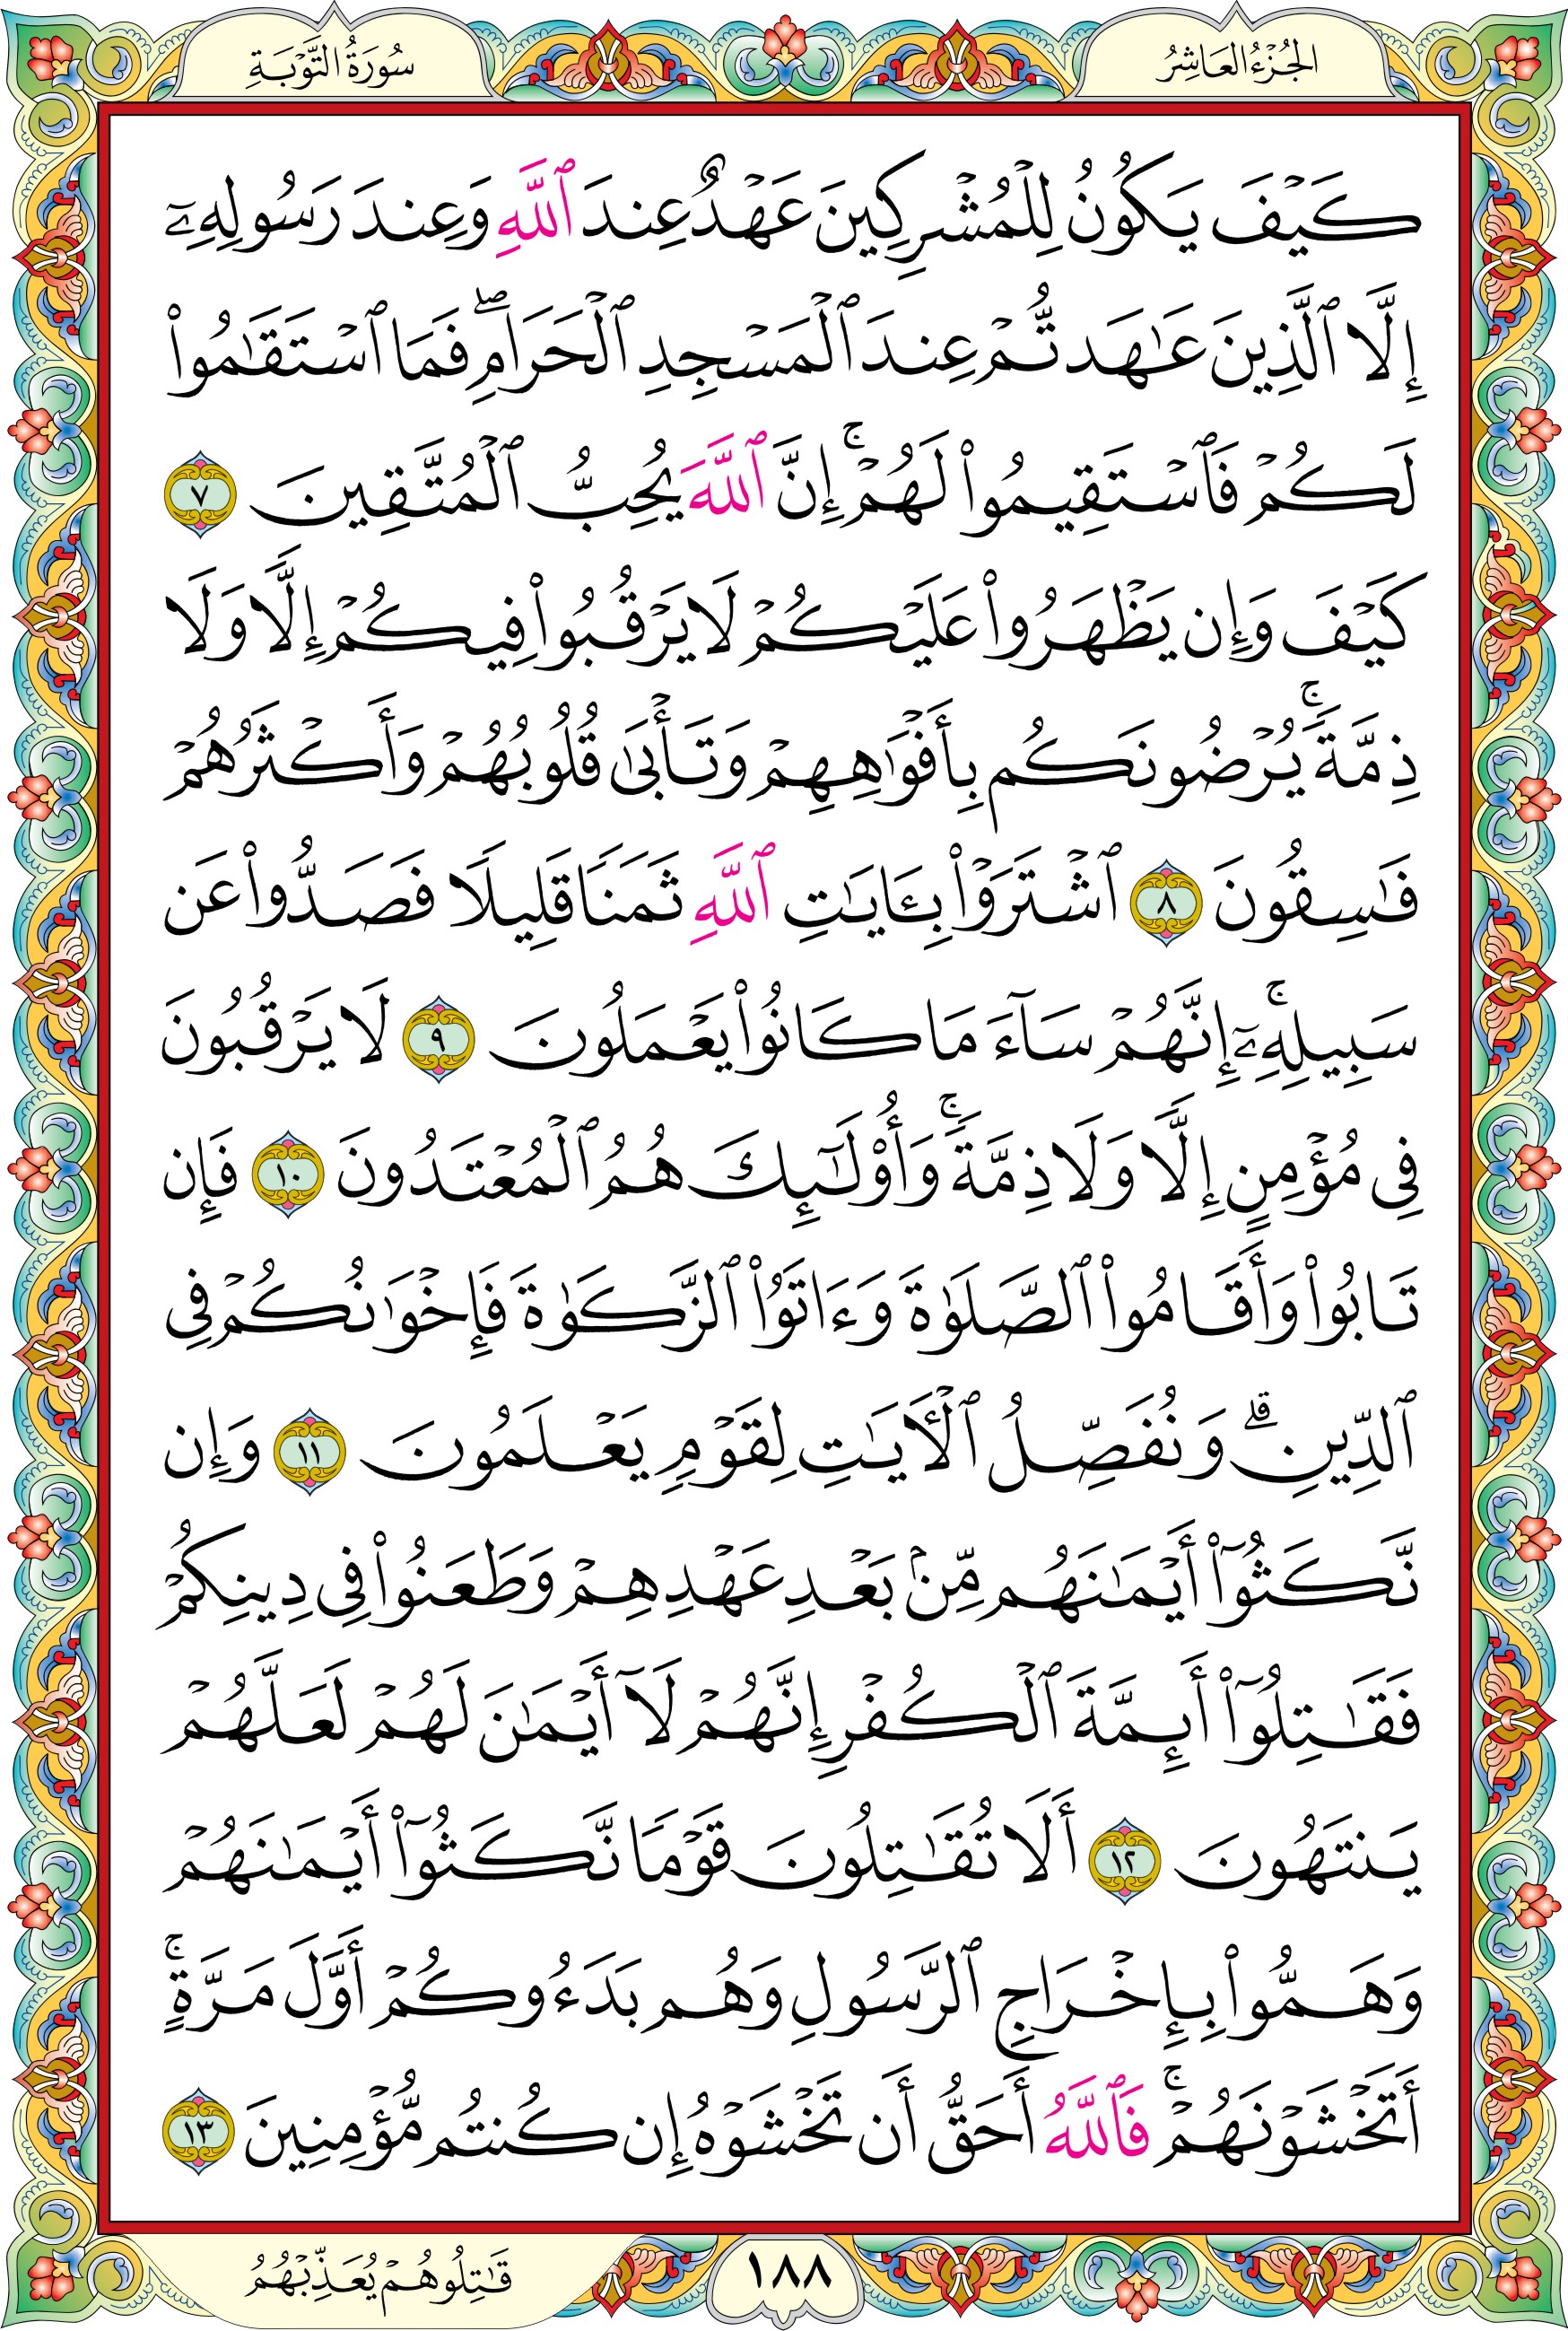 الجُزْءُ العَاشِرُ
سُورَةُ التَّوْبَةِ
كَيۡفَ يَكُونُ لِلۡمُشۡرِكِينَ عَهۡدٌ عِندَ ٱللَّهِ وَعِندَ رَسُولِهِۦٓ
إِلَّا ٱلَّذِينَ عَٰهَدتُّمۡ عِندَ ٱلۡمَسۡجِدِ ٱلۡحَرَامِۖ فَمَا ٱسۡتَقَٰمُواْ
لَكُمۡ فَٱسۡتَقِيمُواْ لَهُمۡۚ إِنَّ ٱللَّهَ يُحِبُّ ٱلۡمُتَّقِينَ ٧
كَيۡفَ وَإِن يَظۡهَرُواْ عَلَيۡكُمۡ لَا يَرۡقُبُواْ فِيكُمۡ إِلّٗا وَلَا
ذِمَّةٗۚ يُرۡضُونَكُم بِأَفۡوَٰهِهِمۡ وَتَأۡبَىٰ قُلُوبُهُمۡ وَأَكۡثَرُهُمۡ
فَٰسِقُونَ ٨ ٱشۡتَرَوۡاْ بِـَٔايَٰتِ ٱللَّهِ ثَمَنٗا قَلِيلٗا فَصَدُّواْ عَن
سَبِيلِهِۦٓۚ إِنَّهُمۡ سَآءَ مَا كَانُواْ يَعۡمَلُونَ ٩ لَا يَرۡقُبُونَ
فِي مُؤۡمِنٍ إِلّٗا وَلَا ذِمَّةٗۚ وَأُوْلَٰٓئِكَ هُمُ ٱلۡمُعۡتَدُونَ ١٠ فَإِن
تَابُواْ وَأَقَامُواْ ٱلصَّلَوٰةَ وَءَاتَوُاْ ٱلزَّكَوٰةَ فَإِخۡوَٰنُكُمۡ فِي
ٱلدِّينِۗ وَنُفَصِّلُ ٱلۡأٓيَٰتِ لِقَوۡمٖ يَعۡلَمُونَ ١١ وَإِن
نَّكَثُوٓاْ أَيۡمَٰنَهُم مِّنۢ بَعۡدِ عَهۡدِهِمۡ وَطَعَنُواْ فِي دِينِكُمۡ
فَقَٰتِلُوٓاْ أَئِمَّةَ ٱلۡكُفۡرِ إِنَّهُمۡ لَآ أَيۡمَٰنَ لَهُمۡ لَعَلَّهُمۡ
يَنتَهُونَ ١٢ أَلَا تُقَٰتِلُونَ قَوۡمٗا نَّكَثُوٓاْ أَيۡمَٰنَهُمۡ
وَهَمُّواْ بِإِخۡرَاجِ ٱلرَّسُولِ وَهُم بَدَءُوكُمۡ أَوَّلَ مَرَّةٍۚ
أَتَخۡشَوۡنَهُمۡۚ فَٱللَّهُ أَحَقُّ أَن تَخۡشَوۡهُ إِن كُنتُم مُّؤۡمِنِينَ ١٣
١٨٨
قَٰتِلُوهُمۡ يُعَذِّبۡهُمُ